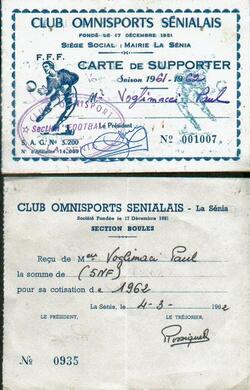 CLUB OMNISPORTS SÉNIALAIS
FONDÉ LE 17 DÉCEMBRE 1951
SIÈGE SOCIAL : MAIRIE LA SÉNIA
F.F.F. CARTE DE SUPPORTER
Saison 1961-1962
Mr Voglimacci Paul
Section FOOTBALL
Le Président
S. A. G. No 3.200
No 001007
CLUB OMNISPORTS SENIALAIS - La Sénia
Société Fondée le 17 Décembre 1951
SECTION BOULES
Reçu de Mr Voglimaci Paul
la somme de (5NF)
pour sa cotisation d 1962
La Sénia, le 4-3- 1962
LE PRÉSIDENT, LE TRÉSORIER,
No 0935